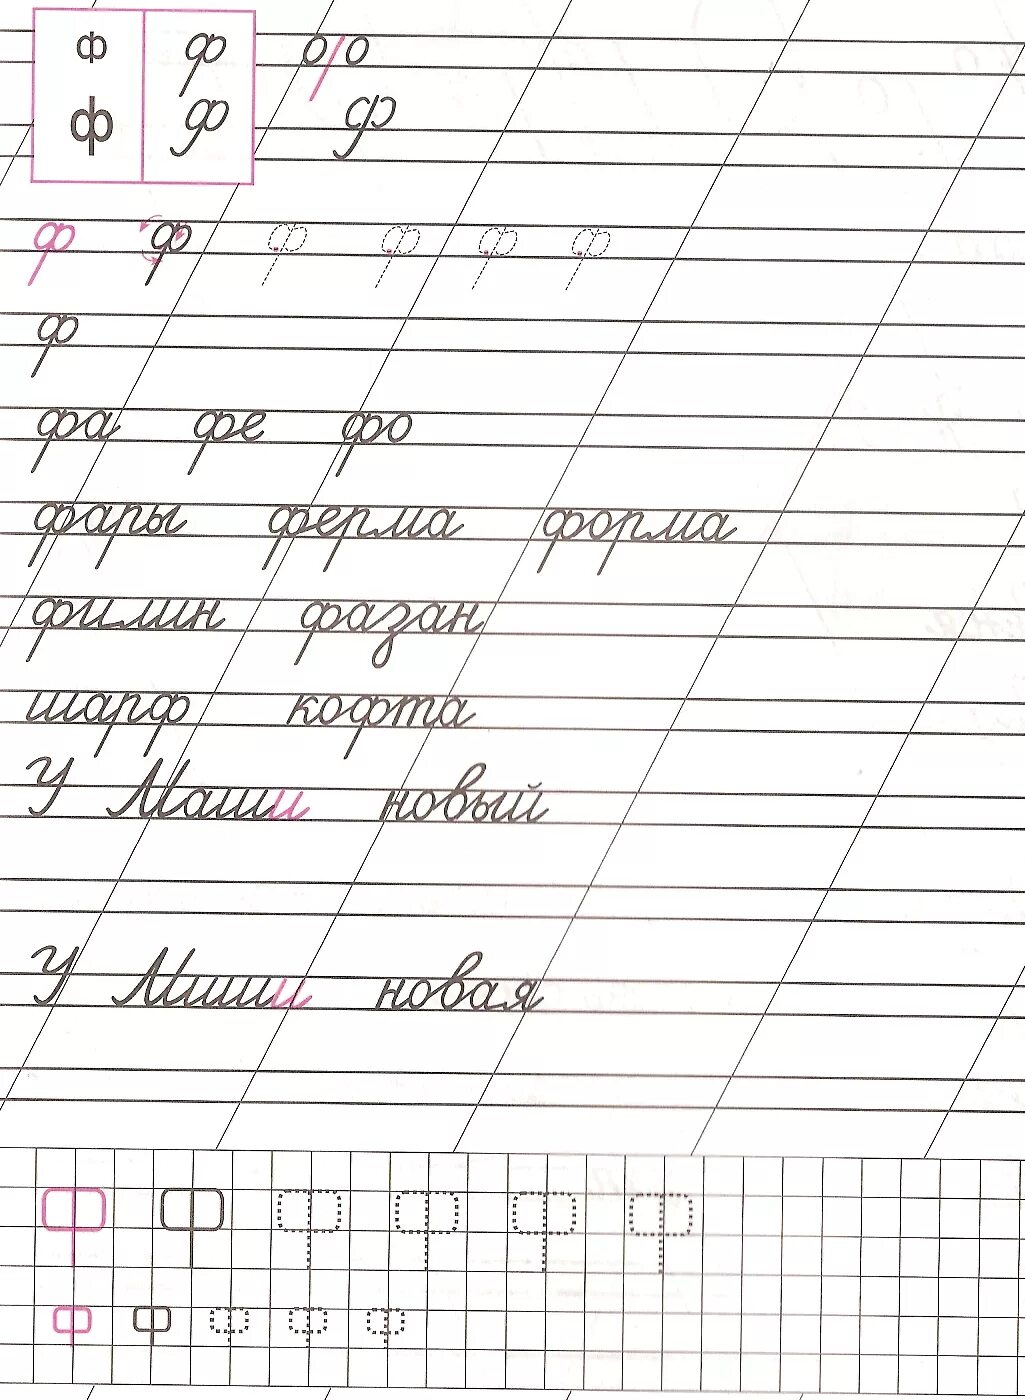 ф ф о/о
ф ф ф
ф ф ф ф ф ф
ф
фа фе фо
фары ферма форма
филин фазан
шарф кофта
У Маши новый
У Миши новая
ф ф ф ф ф ф
ф ф ф ф ф